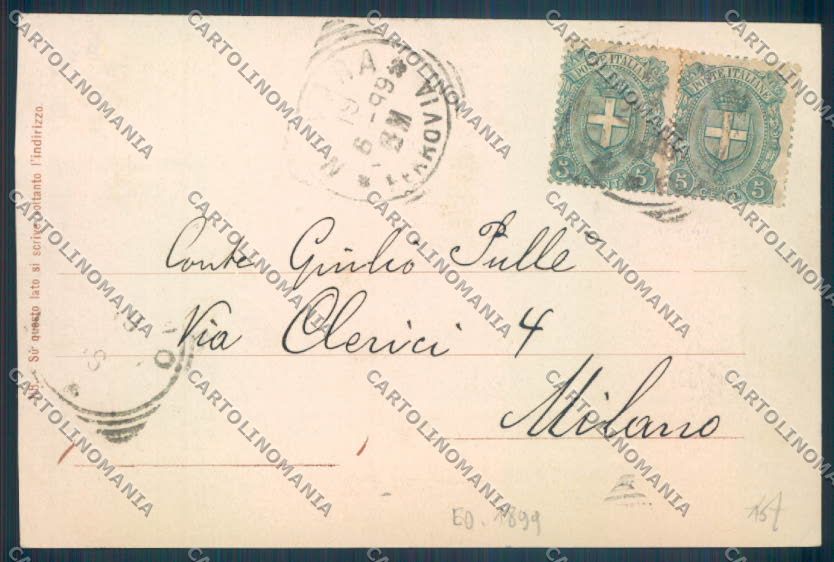 POSTE ITALIANE
5 C. C. 5
POSTE ITALIANE
5 C. C. 5
FERROVIA
6 - 99
Conte Giulio Pullè
Via Clerici 4
Milano
Su questo lato si scrive soltanto l'indirizzo.
ED. 1899
15f
CARTOLINOMANIA